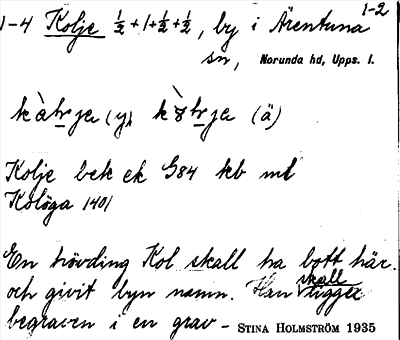 1-2
1-4 Kolje ½ + 1 + ½ + ½, by i Ärentuna
sn, Norunda hd, Upps. l.
(y) (ä)
Kolje bek ek G84 kb ml
Kolöga 1401
En hövding Kol skall ha bott här.
och givit byn namn. Han skall ligger
begraven i en grav – STINA HOLMSTRÖM 1935